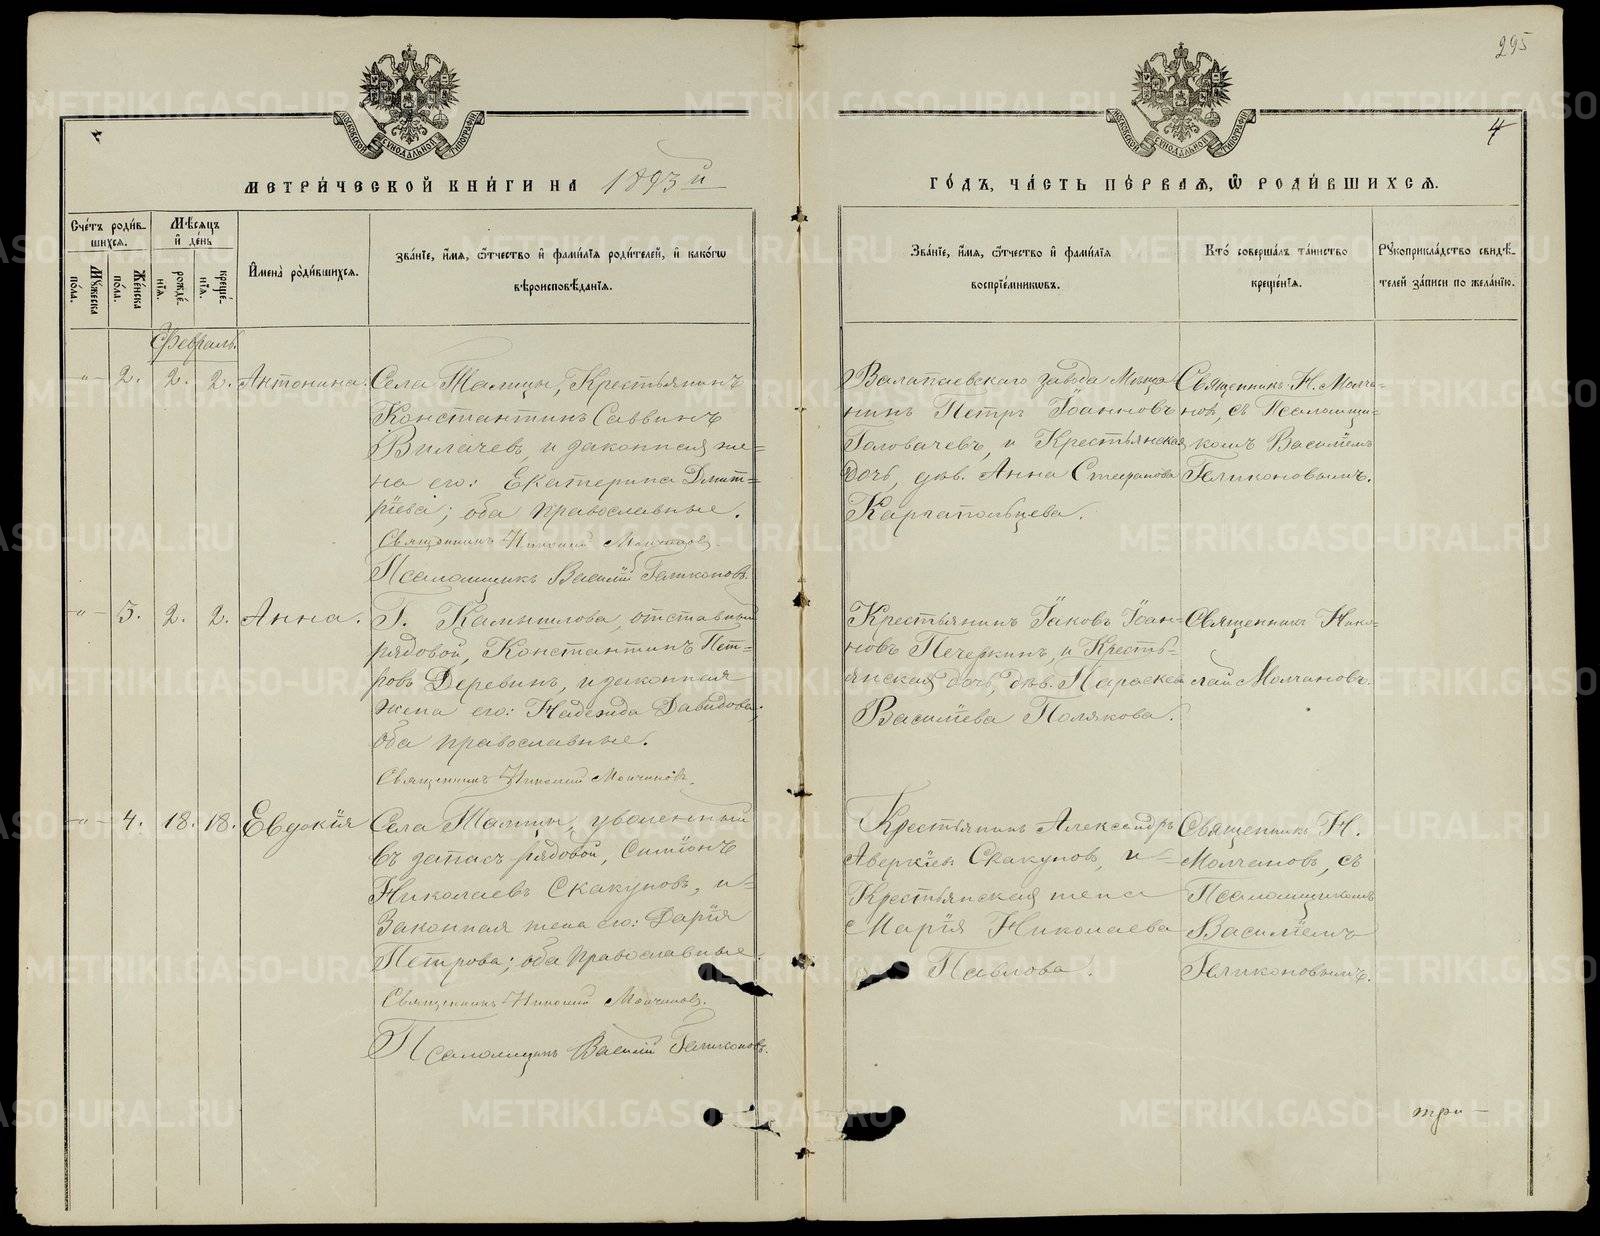 295
4
МОСКОВСКОЙ СѴНОДАЛЬНОЙ ТИПОГРАФІИ
МОСКОВСКОЙ СѴНОДАЛЬНОЙ ТИПОГРАФІИ
МЕТРИ́ЧЕСКОЙ КНИ́ГИ НА 1893й
ГО́ДЪ, ЧА́СТЬ ПЕ́РВАЯ, Ѿ РОДИ́ВШИХСЯ.
Сче́тъ роди́в-
шихся.
Му́жеска
по́ла.
Же́нска
по́ла.
Мѣ́сяцъ
и де́нь
рожде́-
нїя.
креще́-
нїя.
И҆мена̀ роди́вшихся.
Зва́нїе, и҆́мя, ѻ҆́тчество и҆ фами́лїя роди́телей, и҆ како́гѡ
вѣроисповѣ́данїя.
Зва́нїе, и҆́мя, ѻ҆́тчество и҆ фами́лїя
воспрїе́мниковъ.
Кто́ соверша́лъ та́инство
креще́нїя.
Рукоприкла́дство свидѣ́-
телей за́писи по жела́нїю.
Февраль.
-"- 2. 2. 2. Антонина.
Села Талицы, Крестьянинъ
Константинъ Саввинъ
Вилачевъ, и законная же-
на его: Екатерина Дмит-
ріева; оба православные.
Священникъ Николай Молчановъ.
Псаломщикъ Василій Геликоновъ.
Валапаевскаго завода Мѣща-
нинъ Петръ Іоанновъ
Головачевъ, и Крестьянская
дочь, дѣв. Анна Стефанова
Каргапольцева.
Священникъ Н. Молча-
новъ, съ Псаломщи-
комъ Василіемъ
Геликоновымъ.
-"- 3. 2. 2. Анна.
Г. Камышлова, отставный
рядовой, Константинъ Пет-
ровъ Деревинъ, и законная
жена его: Надежда Давидова;
оба православные.
Священникъ Николай Молчановъ.
Крестьянинъ Іаковъ Іоан-
новъ Печеркинъ, и Кресть-
янская дочь, дѣв. Параскева
Василіева Полякова.
Священникъ Нико-
лай Молчановъ.
-"- 4. 18. 18. Евдокія
Села Талицы, уволенный
въ запасъ рядовой, Симіонъ
Николаевъ Скакуновъ, и
Законная жена его: Дарія
Петрова; оба православные.
Священникъ Николай Молчановъ.
Псаломщикъ Василій Геликоновъ.
Крестьянинъ Александръ
Аверкіев Скакуновъ, и
Крестьянская жена
Марія Николаева
Павлова.
Священникъ Н.
Молчановъ, съ
Псаломщикомъ
Василіемъ
Геликоновымъ.
три —
METRIKI.GASO-URAL.RU